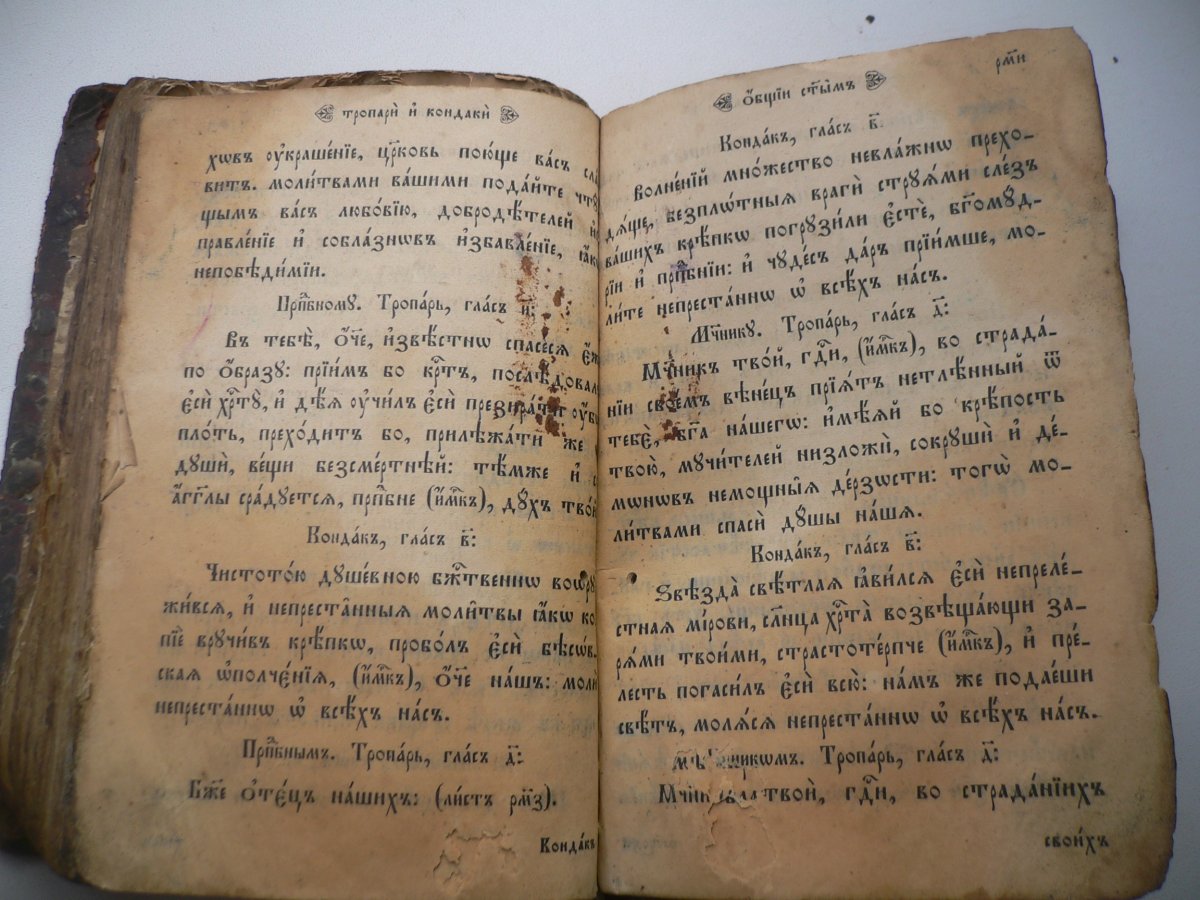 тропарѝ и҆ кондакѝ
хѡвъ ᲂу҆краше́нїе, цр҃ковь пою́ще ва́съ сла
витъ. моли́твами ва́шими пода́йте чту́
щымъ ва́съ любо́вїю, добродѣ́телей и҆
правле́нїе и҆ собла́знѡвъ и҆збавле́нїе, ꙗ҆́кѡ
непобѣди́мїи.
Прпⷣбному. Тропа́рь, гла́съ и҃:
Въ тебѣ̀, ѻ҆́ч҃е, и҆звѣ́стнѡ спасе́сѧ є҆́же
по ѻ҆́бразу: прїи́мъ бо крⷭ҇тъ, послѣ́довалъ
є҆сѝ хрⷭ҇тꙋ̀, и҆ дѣ́ѧ ᲂу҆чи́лъ є҆сѝ презира́ти ᲂу҆́бѡ
пло́ть, прехо́дитъ бо, прилѣжа́ти же
душѝ, ве́щи безсме́ртнѣй: тѣ́мже и҆
а҆́гг҃лы сра́дуетсѧ, прпⷣбне (и҆́мкⷬ҇ъ), дꙋ́хъ тво́й
Конда́къ, гла́съ в҃:
Чистото́ю дꙋше́вною бж҃твеннѡ воѡрꙋ
жи́всѧ, и҆ непреста̑нныѧ моли̑твы ꙗ҆́кѡ ко
пїѐ врꙋчи́въ крѣ́пкѡ, пробо́лъ є҆сѝ бѣсѡ́в
скаѧ ѡ҆полче́нїѧ, (и҆́мкⷬ҇ъ), ѻ҆́ч҃е на́шъ: молѝ
непреста́ннѡ ѡ҆ всѣ́хъ на́съ.
Прпⷣбнымъ. Тропа́рь, гла́съ д҃:
Бж҃е ѻ҆те́цъ на́шихъ: (ли́стъ рм҃з).
Конда́къ
ѻ҆́бщїи ст҃ы̑мъ
рм҃и
Конда́къ, гла́съ в҃:
Волне́нїй мно́жество невла́жнѡ прехо-
дѧ́ще, безплѡ́тныѧ врагѝ стрꙋѧ́ми сле́зъ
ва́шихъ крѣ́пкѡ погрꙋзи́ли є҆стѐ, бг҃омꙋ́д-
рїи и҆ прпⷣбнїи: и҆ чꙋде́съ да́ръ прїи́мше, мо-
ли́те непреста́ннѡ ѡ҆ всѣ́хъ на́съ.
Мч҃нику. Тропа́рь, гла́съ д҃:
Мч҃никъ тво́й, гдⷭ҇и, (и҆́мкⷬ҇ъ), во страда́-
нїи свое́мъ вѣне́цъ прїѧ́тъ нетлѣ́нный ѿ
тебѐ, бг҃а на́шегѡ: и҆мѣ́ѧй бо крѣ́пость
твою̀, мꙋчи́телей низложѝ, сокрꙋшѝ и҆ де́-
мѡнѡвъ немощны̑ѧ де́рзѡсти: тогѡ̀ мо-
ли́твами спасѝ дꙋ́шы на́шѧ.
Конда́къ, гла́съ в҃:
Ѕвѣзда̀ свѣ́тлаѧ ꙗ҆ви́лсѧ є҆сѝ непреле́-
стнаѧ мі́рови, сл҃нца хрⷭ҇та̀ возвѣща́ющи за-
рѧ́ми твои́ми, страстоте́рпче (и҆́мкⷬ҇ъ), и҆ пре́-
лесть погаси́лъ є҆сѝ всю̀: на́мъ же подае́ши
свѣ́тъ, молѧ́сѧ непреста́ннѡ ѡ҆ всѣ́хъ на́съ.
Тропа́рь, гла́съ д҃:
твой, гдⷭ҇и, во страда́нїихъ
свои́хъ